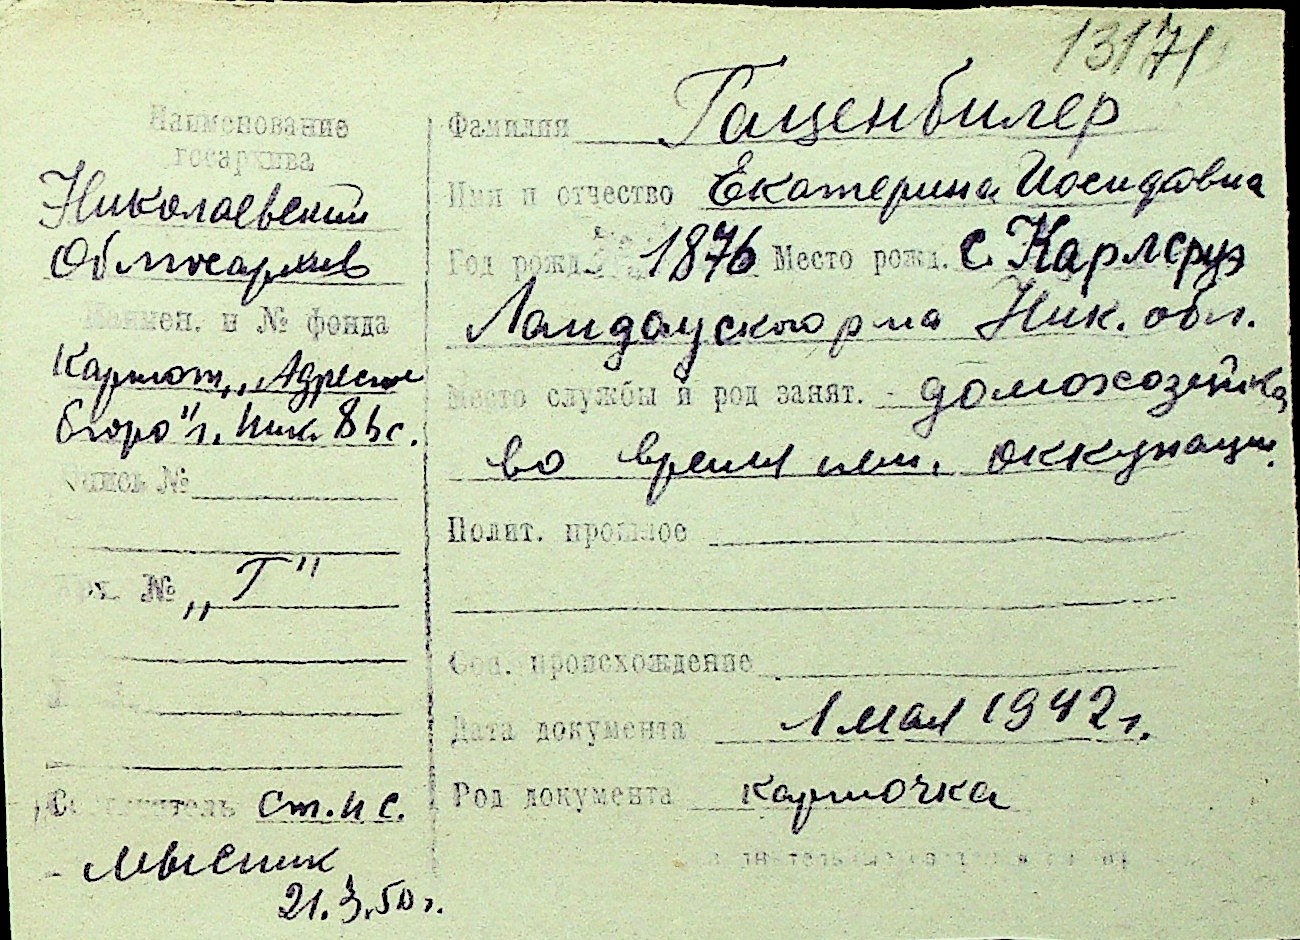 13171
Наименование
госархива
Николаевский
Облгосархив
Наимен. и № фонда
Картот. „Адресное
бюро" г. Ник. 8 Ис.
Опись №
Арх. № „Г"
Составитель ст. н с.
Мысник
21.3.50 г.
Фамилия Гаценбилер
Имя и отчество Екатерина Иосифовна
Год рожд. 1876 Место рожд. с. Карлсруэ
Ландауского р-на Ник. обл.
Место службы и род занят. - домохозяйка
во время нем. оккупации.
Полит. прошлое
Соц. происхождение
Дата документа 1 мая 1942 г.
Род документа карточка